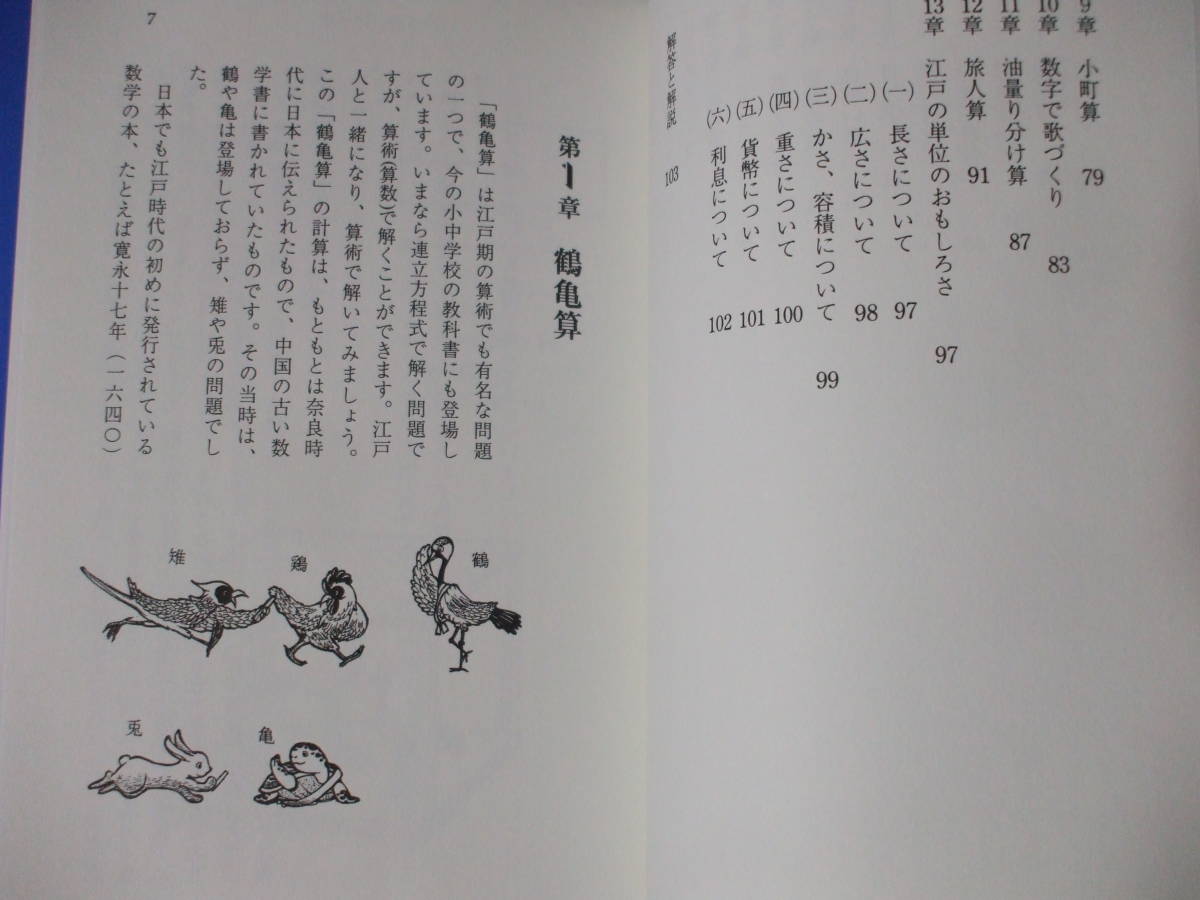 9章 小町算 79
10章 数字で歌づくり 83
11章 油量り分け算 87
12章 旅人算 91
13章 江戸の単位のおもしろさ 97
(一) 長さについて 97
(二) 広さについて 98
(三) かさ、容積について 99
(四) 重さについて 100
(五) 貨幣について 101
(六) 利息について 102
解答と解説 103
第1章 鶴亀算
「鶴亀算」は江戸期の算術でも有名な問題
の一つで、今の小中学校の教科書にも登場し
ています。いまなら連立方程式で解く問題で
すが、算術(算数)で解くことができます。江戸
人と一緒になり、算術で解いてみましょう。
この「鶴亀算」の計算は、もともとは奈良時
代に日本に伝えられたもので、中国の古い数
学書に書かれていたものです。その当時は、
鶴や亀は登場しておらず、雉や兎の問題でし
た。
日本でも江戸時代の初めに発行されている
数学の本、たとえば寛永十七年(一六四〇)
鶴
鶏
雉
亀
兎
7